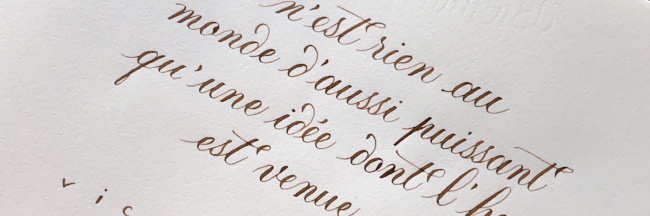 n'est rien au
monde d'aussi puissant
qu'une idée dont l'h
est venue
v i c